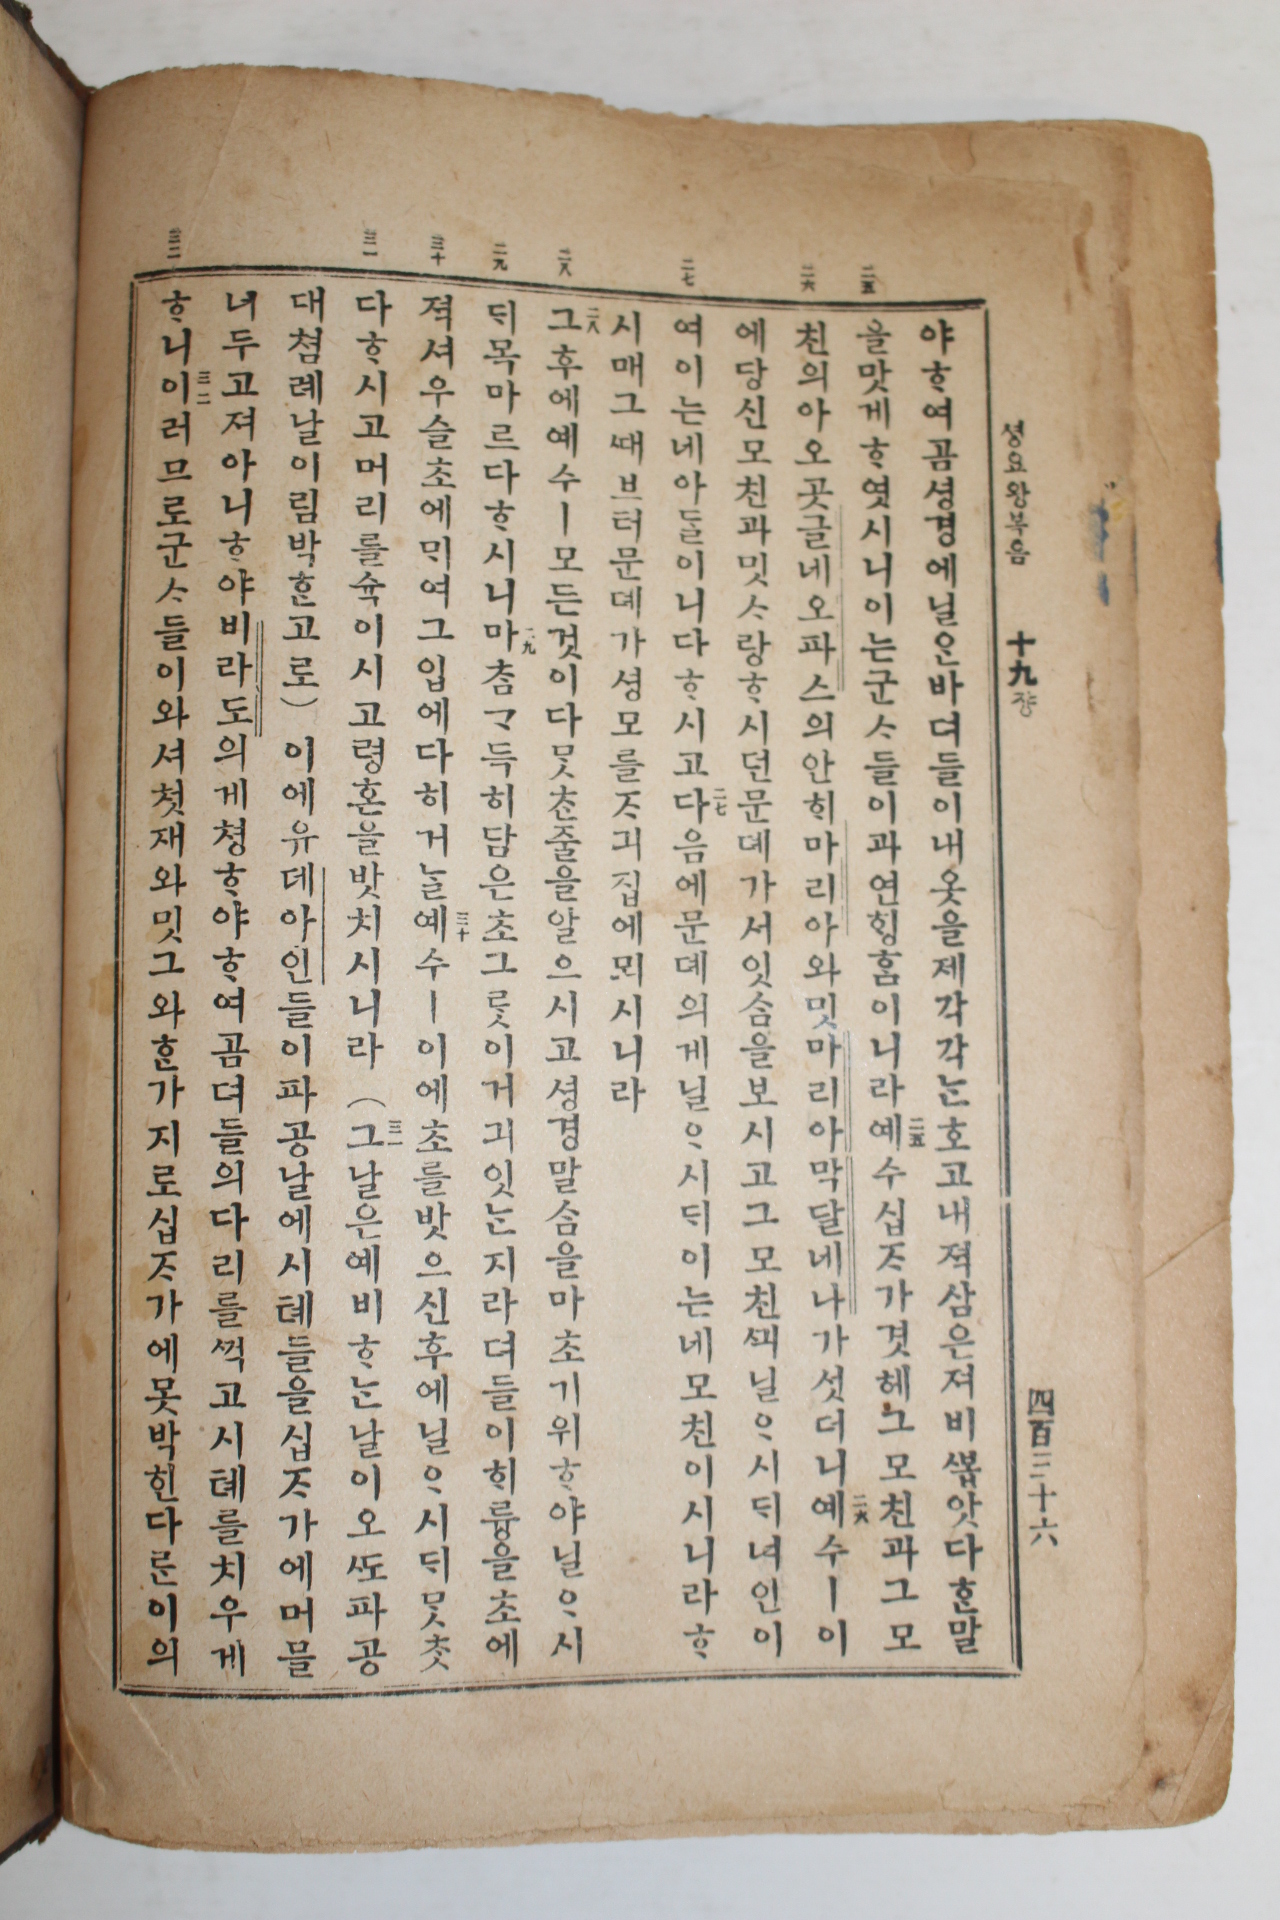 셩요왕복음 十九쟝 四百三十六
二五
二六
二七
二八
二九
三十
三一
三二
야ᄒᆞ여곰셩경에닐ᄋᆞᆫ바뎌들이내옷을제각각ᄂᆞᆫ호고내젹삼은져비ᄲᅩᆸ앗다ᄒᆞᆫ말
을맛게ᄒᆞ엿시니이는군ᄉᆞ들이과연ᄒᆡᆼᄒᆞᆷ이니라二五예수십ᄌᆞ가겻헤그모친과그모
친의아오곳글네오파스의안ᄒᆡ마리아와밋마리아막달네나가섯더니二六예수ㅣ이
에당신모친과밋ᄉᆞ랑ᄒᆞ시던문뎨가서잇ᄉᆞᆷ을보시고그모친ᄭᅴ닐ᄋᆞ시ᄃᆡ녀인이
여이는네아들이니다ᄒᆞ시고二七다음에문뎨의게닐ᄋᆞ시ᄃᆡ이는네모친이시니라ᄒᆞ
시매그ᄯᅢ브터문뎨가셩모를ᄌᆞ긔집에뫼시니라
二八그후에예수ㅣ모든것이다ᄆᆞᆺᄎᆞᆫ줄을알으시고셩경말ᄉᆞᆷ을마초기위ᄒᆞ야닐ᄋᆞ시
ᄃᆡ목마르다ᄒᆞ시니二九마ᄎᆞᆷᄀᆞ득히담은초그ᄅᆞᆺ이거긔잇ᄂᆞᆫ지라뎌들이ᄒᆡ륭을초에
젹셔우슬초에ᄆᆡ여그입에다히거ᄂᆞᆯ三十예수ㅣ이에초를밧으신후에닐ᄋᆞ시ᄃᆡᄆᆞᆺᄎᆞᆺ
다ᄒᆞ시고머리를슉이시고령혼을밧치시니라（三一그날은예비ᄒᆞᄂᆞᆫ날이오ᄯᅩ파공
대쳠례날이림박ᄒᆞᆫ고로）이에유데아인들이파공날에시톄들을십ᄌᆞ가에머믈
녀두고져아니ᄒᆞ야비라도의게쳥ᄒᆞ야ᄒᆞ여곰뎌들의다리를ᄭᅥᆨ고시톄를치우게
ᄒᆞ니三二이러므로군ᄉᆞ들이와셔첫재와밋그와ᄒᆞᆫ가지로십ᄌᆞ가에못박힌다ᄅᆞᆫ이의